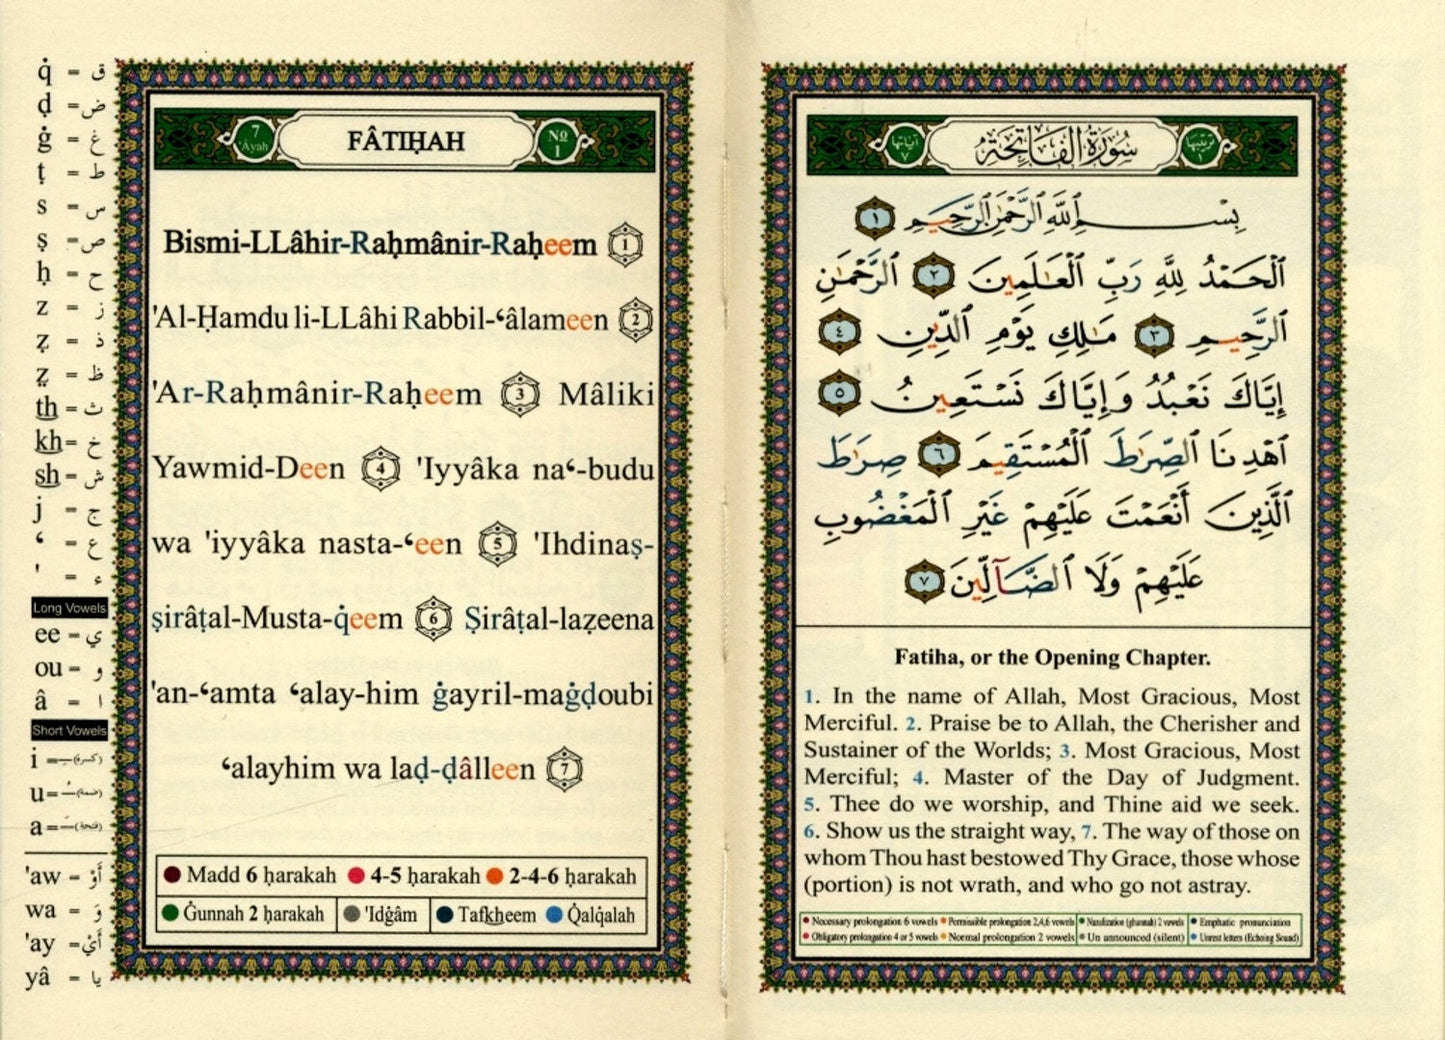 q̇ = ق
ḍ = ض
ġ = غ
ṭ = ط
s = س
ṣ = ص
ḥ = ح
z = ز
ẓ = ذ
ẓ̤ = ظ
th = ث
kh = خ
sh = ش
j = ج
‘ = ع
' = ء
Long Vowels
ee = ي
ou = و
â = ا
Short Vowels
i = ـِ (كسرة)
u = ـُ (ضمة)
a = ـَ (فتحة)
'aw = أَوْ
wa = وَ
'ay = أَيْ
yâ = يا
7 'Âyah FÂTIḤAH No 1
Bismi-LLâhir-Raḥmânir-Raḥeem 1
'Al-Ḥamdu li-LLâhi Rabbil-‘âlameen 2
'Ar-Raḥmânir-Raḥeem 3 Mâliki
Yawmid-Deen 4 'Iyyâka na‘-budu
wa 'iyyâka nasta-‘een 5 'Ihdinaṣ-
ṣirâṭal-Musta-q̇eem 6 Ṣirâṭal-laẓeena
'an-‘amta ‘alay-him ġayril-maġḍoubi
‘alayhim wa laḍ-ḍâlleen 7
Madd 6 ḥarakah 4-5 ḥarakah 2-4-6 ḥarakah
Ġunnah 2 ḥarakah 'Idġâm Tafkheem Q̇alq̇alah
ترتيبها ١ سُورَةُ الفَاتِحَةِ آياتها ٧
بِسْمِ ٱللَّهِ ٱلرَّحْمَٰنِ ٱلرَّحِيمِ ١
ٱلْحَمْدُ لِلَّهِ رَبِّ ٱلْعَٰلَمِينَ ٢ ٱلرَّحْمَٰنِ
ٱلرَّحِيمِ ٣ مَٰلِكِ يَوْمِ ٱلدِّينِ ٤
إِيَّاكَ نَعْبُدُ وَإِيَّاكَ نَسْتَعِينُ ٥
ٱهْدِنَا ٱلصِّرَٰطَ ٱلْمُسْتَقِيمَ ٦ صِرَٰطَ
ٱلَّذِينَ أَنْعَمْتَ عَلَيْهِمْ غَيْرِ ٱلْمَغْضُوبِ
عَلَيْهِمْ وَلَا ٱلضَّآلِّينَ ٧
Fatiha, or the Opening Chapter.
1. In the name of Allah, Most Gracious, Most
Merciful. 2. Praise be to Allah, the Cherisher and
Sustainer of the Worlds; 3. Most Gracious, Most
Merciful; 4. Master of the Day of Judgment.
5. Thee do we worship, and Thine aid we seek.
6. Show us the straight way, 7. The way of those on
whom Thou hast bestowed Thy Grace, those whose
(portion) is not wrath, and who go not astray.
Necessary prolongation 6 vowels Permissible prolongation 2,4,6 vowels Nazalization (ghunnah) 2 vowels Emphatic pronunciation
Obligatory prolongation 4 or 5 vowels Normal prolongation 2 vowels Un announced (silent) Unrest letters (Echoing Sound)